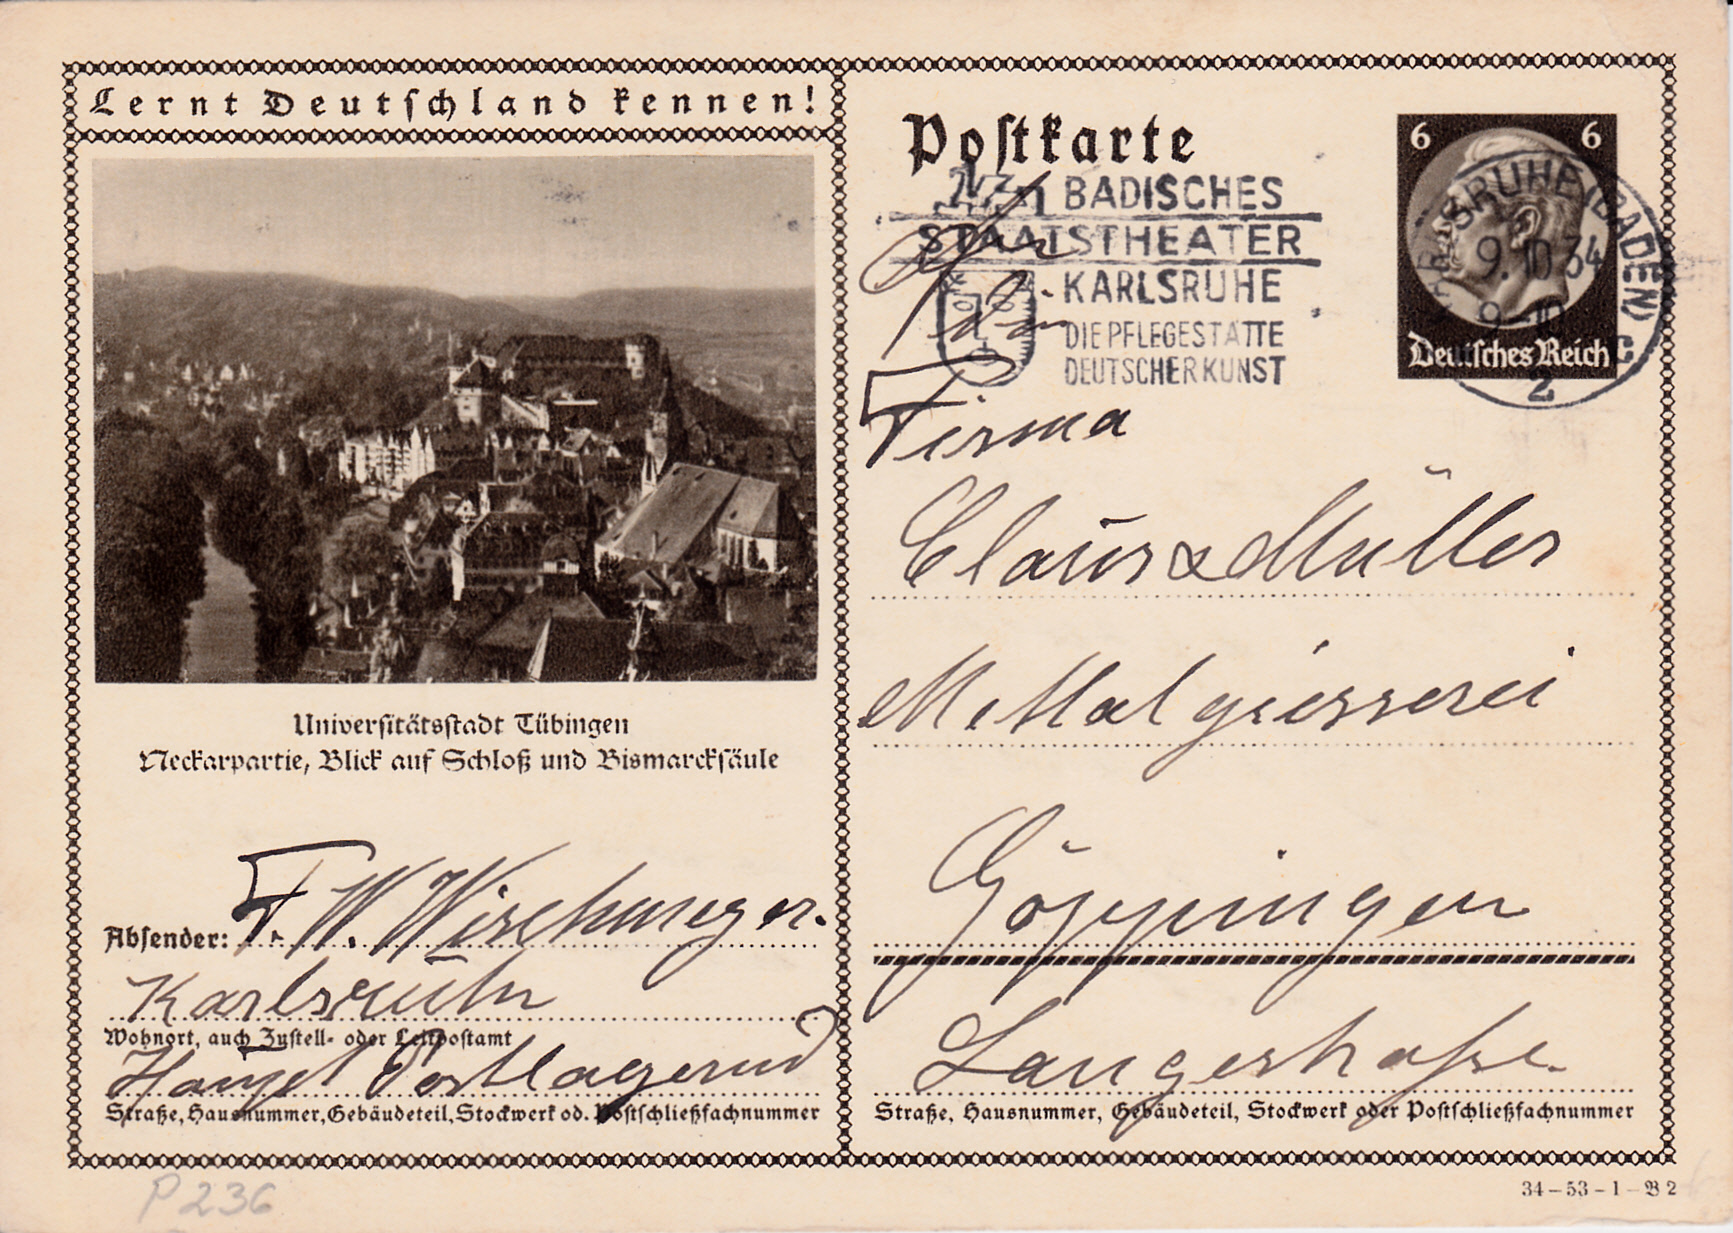 Lernt Deutschland kennen!
Universitätsstadt Tübingen
Neckarpartie, Blick auf Schloß und Bismarcksäule
Absender: F. W.
Karlsruhe
Wohnort, auch Zustell- oder Leitpostamt
Postlagernd
Straße, Hausnummer, Gebäudeteil, Stockwerk od. Postschließfachnummer
P 236
Postkarte
6 6
Deutsches Reich
KARLSRUHE (BADEN)
9.10.34
9-10
c
2
BADISCHES
STAATSTHEATER
KARLSRUHE
DIE PFLEGESTÄTTE
DEUTSCHER KUNST
Firma
Claus & Müller
Metallgiesserei
Göppingen
Langestraße.
Straße, Hausnummer, Gebäudeteil, Stockwerk oder Postschließfachnummer
34-53-1-B 2